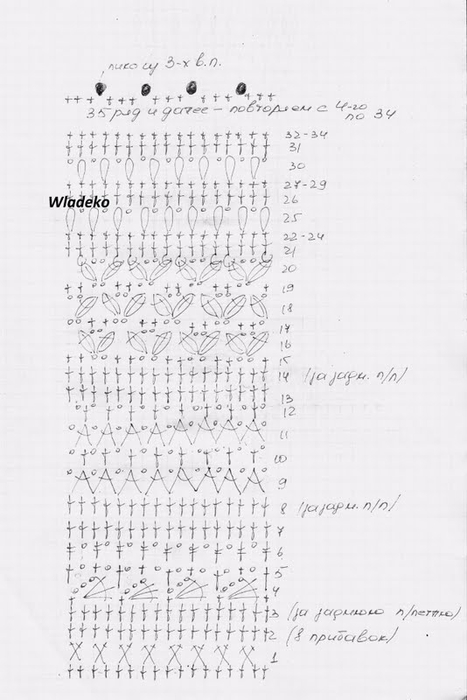 пико из 3-х в.п.
35 ряд и далее - повторяем с 4-го
по 34
32-34
31
30
27-29
Wladeko
26
25
22-24
21
20
19
18
17
16
15
14 (за задн. п/п)
13
12
11
10
9
8 (за задн. п/п)
7
6
5
4
3 (за заднюю п/петлю)
2 (8 прибавок)
1